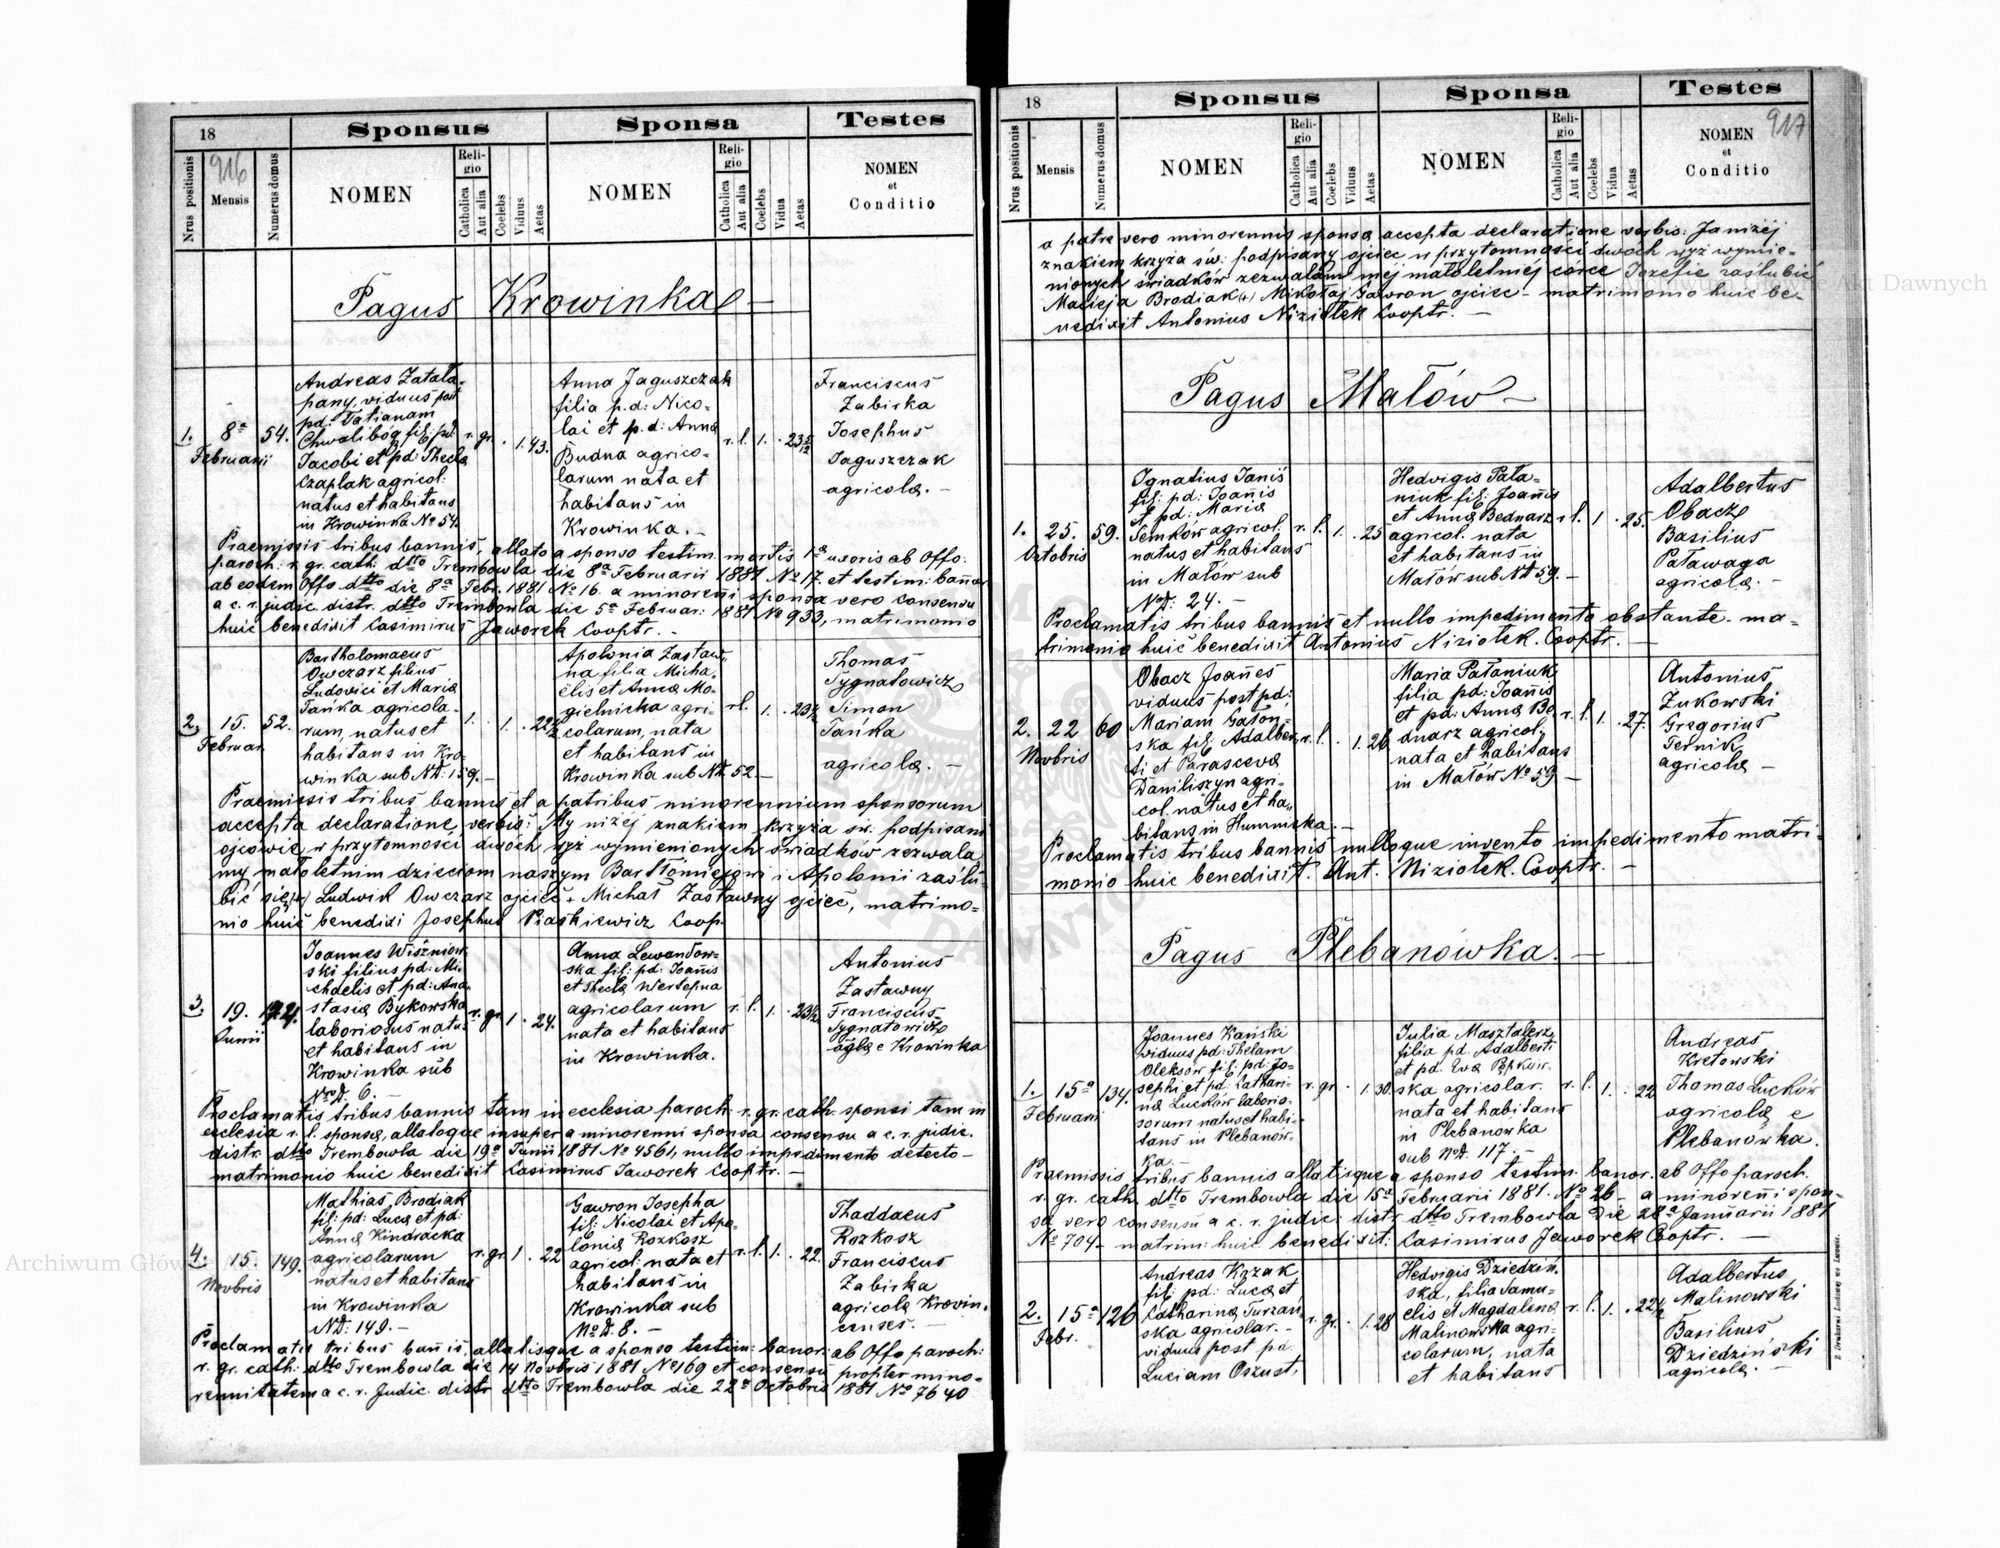 18
Sponsus
Sponsa
Testes
916
Nrus positionis
Mensis
Numerus domus
NOMEN
Religio
Catholica
Aut alia
Coelebs
Viduus
Aetas
NOMEN
Religio
Catholica
Aut alia
Coelebs
Vidua
Aetas
NOMEN
et
Conditio
Pagus Krowinka
1.
8a
Februarii
54.
Andreas Zatala-
pany, viduus post
pd: Tatianam
Chwalibog fil: pd:
Jacobi et pd: Thecla
Czaplak agricol:
natus et habitans
in Krowinka No 54.
r. gr. . 1. 43.
Anna Jaguszczak
filia p.d: Nico-
lai et p.d: Anna
Budna agrico-
larum nata et
habitans in
Krowinka. -
r. l. 1. . 23 5/12
Franciscus
Zabirka
Josephus
Jaguszczak
agricolæ. -
Praemissis tribus bannis, allato a sponso testim. mortis 1æ uxoris ab Offo:
paroch: r. gr. cath. dtto Trembowla die 8a Februarii 1881 No 17. et testim: bañor
ab eodem Offo dtto die 8a Febr. 1881 No 16. a minoreñi sponsa vero consensu
a c. r. judic. distr. dtto Trembowla die 5a Februar: 1881 No 933, matrimonio
huic benedixit Casimirus Jaworek Cooptr. -
2.
15.
Februar.
52.
Bartholomaeus
Owczarz filius
Ludovici et Maria
Tańka agricola-
rum, natus et
habitans in Kro-
winka sub ND: 159. -
1. . 1. . 22
Apolonia Zastaw-
na filia Micha-
ëlis et Anna Mo-
gielnicka agri-
colarum, nata
et habitans in
Krowinka sub ND 52. -
r. l. 1. . 23 1/2
Thomas
Sygnatowicz
Simon
Tańka
agricolæ. -
Praemissis tribus bannis et a patribus minorennium sponsorum
accepta declaratione, verbis: My niżéj znakiem krzyża św. podpisani
ojcowie w przytomności dwóch wyż wymienionych świadków zezwala
my małoletnim dzieciom naszym Bartłomiejowi i Apolonii zaślu-
bić się (+) Ludwik Owczarz ojciec + Michał Zastawny ojciec, matrimo-
nio huic benedixi Josephus Piaskiewicz Coop.
3.
19.
Junii
Joannes Wiśniow-
ski filius pd: Mi-
chaelis et pd: Ana-
stasia Bykowska
laboriosus natus
et habitans in
Krowinka sub
NroD. 6. -
r. gr. 1 . 24.
Anna Lewandow-
ska fil: pd: Joañis
et Thecla Wersepna
agricolarum
nata et habitans
in Krowinka.
r. l. 1. . 23 1/2
Antonius
Zastawny
Franciscus
Sygnatowicz
aglæ e Krowinka
Proclamatis tribus bannis tam in ecclesia paroch. r. gr. cath. sponsi tam in
ecclesia r. l. sponsæ, allatoque insuper a minorenni sponsa consensu a c. r. judic.
distr. dtto Trembowla die 19a Junii 1881 No 4561, nullo impedimento detecto -
matrimonio huic benedixit Casimirus Jaworek Cooptr. -
4.
15.
Novbris
149.
Mathias Brodiak
fil: pd: Luca et pd:
Anna Kindracka
agricolarum
natus et habitans
in Krowinka
ND: 149. -
r. gr. 1 . 22
Gawron Josepha
fil: Nicolai et Apo-
lonia Rozkosz
agricol: nata et
habitans in
Krowinka sub
NoD. 8. -
r. l. 1. . 22.
Thaddaeus
Rozkosz
Franciscus
Zabirka
agricolæ Krowin-
censes. -
Proclamatis tribus bañis, allatisque a sponso testim: banor: ab Offo paroch:
r. gr. cath: dtto Trembowla die 14 Novbris 1881 No 169 et consensu propter mino-
rennitatem a c. r. Judic. distr dtto Trembowla die 22a Octobris 1881 No 7640
18
Sponsus
Sponsa
Testes
917
Nrus positionis
Mensis
Numerus domus
NOMEN
Religio
Catholica
Aut alia
Coelebs
Viduus
Aetas
NOMEN
Religio
Catholica
Aut alia
Coelebs
Vidua
Aetas
NOMEN
et
Conditio
a patre vero minorennis sponsæ accepta declaratione verbis: Ja niżéj
znakiem krzyża św: podpisany ojciec w przytomności dwóch wyż wymie-
nionych świadków zezwalam méj małoletniéj córce Józefie zaślubić
Macieja Brodiak (+) Mikołaj Gawron ojciec - matrimonio huic be-
nedixit Antonius Niziołek Cooptr. -
Pagus Małów -
1.
25.
Octobris
59.
Ignatius Janis
fil: pd: Joañis
et pd: Maria
Semków agricol:
natus et habitans
in Małów sub
NoD: 24. -
r. l. 1 . 25
Hedvigis Pata-
niuk fil: Joañis
et Anna Bednarz
agricol. nata
et habitans in
Małów sub ND 59. -
r. l. 1 . 25.
Adalbertus
Obacz
Basilius
Patawaga
agricolæ. -
Proclamatis tribus bannis et nullo impedimento obstante. ma-
trimonio huic benedixit Antonius Niziołek. Cooptr. -
2.
22
Novbris
60
Obacz Joañes
viduus post pd:
Mariam Gaton-
ska fil: Adalber-
ti et Parasceva
Daniliszyn agri-
col. natus et ha-
bitans in Humniska. -
r. l. . 1. 26.
Maria Pataniuk
filia pd: Joañis
et pd: Anna Be
dnarz agricol:
nata et habitans
in Małów No 59 -
r. l. 1 . 27.
Antonius
Zukowski
Gregorius
Ternik
agricolæ -
Proclamatis tribus bannis nulloque invento impedimento matri-
monio huic benedixit. Ant. Niziołek. Cooptr. -
Pagus Plebanówka. -
1.
15a
Februarii
134.
Joannes Kański
viduus pd: Theclam
Oleksów fil: pd: Jo-
sephi et pd: Cathari-
na Lucków laborio-
sorum natus et habi-
tans in Plebanów-
ka. -
r. gr. . 1. 30.
Julia Masztalerz
filia pd. Adalberti
et pd. Eva Pępkow-
ska agricolar.
nata et habitans
in Plebanowka
sub NoD. 117. -
r. l. 1. . 22
Andreas
Kretowski
Thomas Luckow
agricolæ e
Plebanówka.
Praemissis tribus bannis allatisque a sponso testim. banor. ab Offo paroch.
r. gr. cath. dtto Trembowla die 15a Februarii 1881. No 26 - a minoreñi spon-
sa vero consensu a c. r. judic: distr dtto Trembowla die 28a Januarii 1881
No 704 - matrim: huic benedixit: Casimirus Jaworek Cooptr. -
2.
15a
Febr.
126
Andreas Kozak
fil: pd: Luca et
Catharina Turzań-
ska agricolar. -
viduus post pd.
Luciam Oszust,
r. gr. . 1. 28
Hedvigis Dziedziń-
ska, filia Samu-
elis et Magdalena
Malinowska agri-
colarum, nata
et habitans
r. l. 1. . 22 1/2
Adalbertus
Malinowski
Basilius
Dziedziński
agricolæ. -
Z Drukarni Ludowej we Lwowie.
Archiwum Główne Akt Dawnych
Archiwum Główne Akt Dawnych